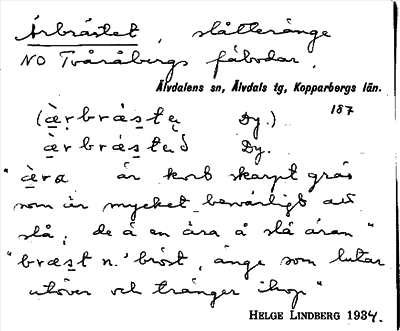 Ärbröstet, slåtteränge
NO Tvåråbergs fäbodar.
Älvdalens sn, Älvdals tg, Kopparbergs län.
187
(ὲrbrǽstę Dy.)
ὲrbrǽsteð Dy.
"ὲra är kort skarpt gräs
som är mycket besvärligt att
slå; de å en ära å slå äran"
"bræst n. 'bröst', änge som lutar
utöver och tränger ihop"
HELGE LINDBERG 1934.